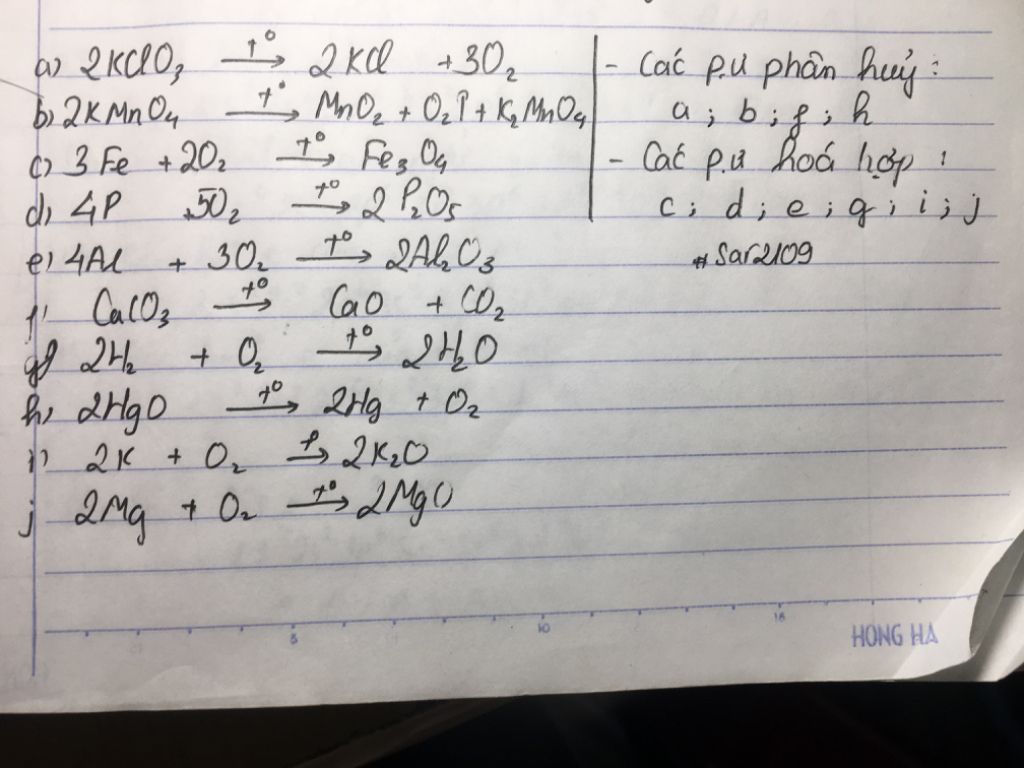 a) 2KClO₃ →(t°) 2KCl + 3O₂
b) 2KMnO₄ →(t°) MnO₂ + O₂↑ + K₂MnO₄
c) 3Fe + 2O₂ →(t°) Fe₃O₄
d) 4P + 5O₂ →(t°) 2P₂O₅
e) 4Al + 3O₂ →(t°) 2Al₂O₃
f) CaCO₃ →(t°) CaO + CO₂
g) 2H₂ + O₂ →(t°) 2H₂O
h) 2HgO →(t°) 2Hg + O₂
i) 2K + O₂ → 2K₂O
j) 2Mg + O₂ →(t°) 2MgO
- Các p.ư phân huỷ :
a ; b ; f ; h
- Các p.ư hoá hợp :
c ; d ; e ; g ; i ; j
#Sar2109
5 10 15
HONG HA